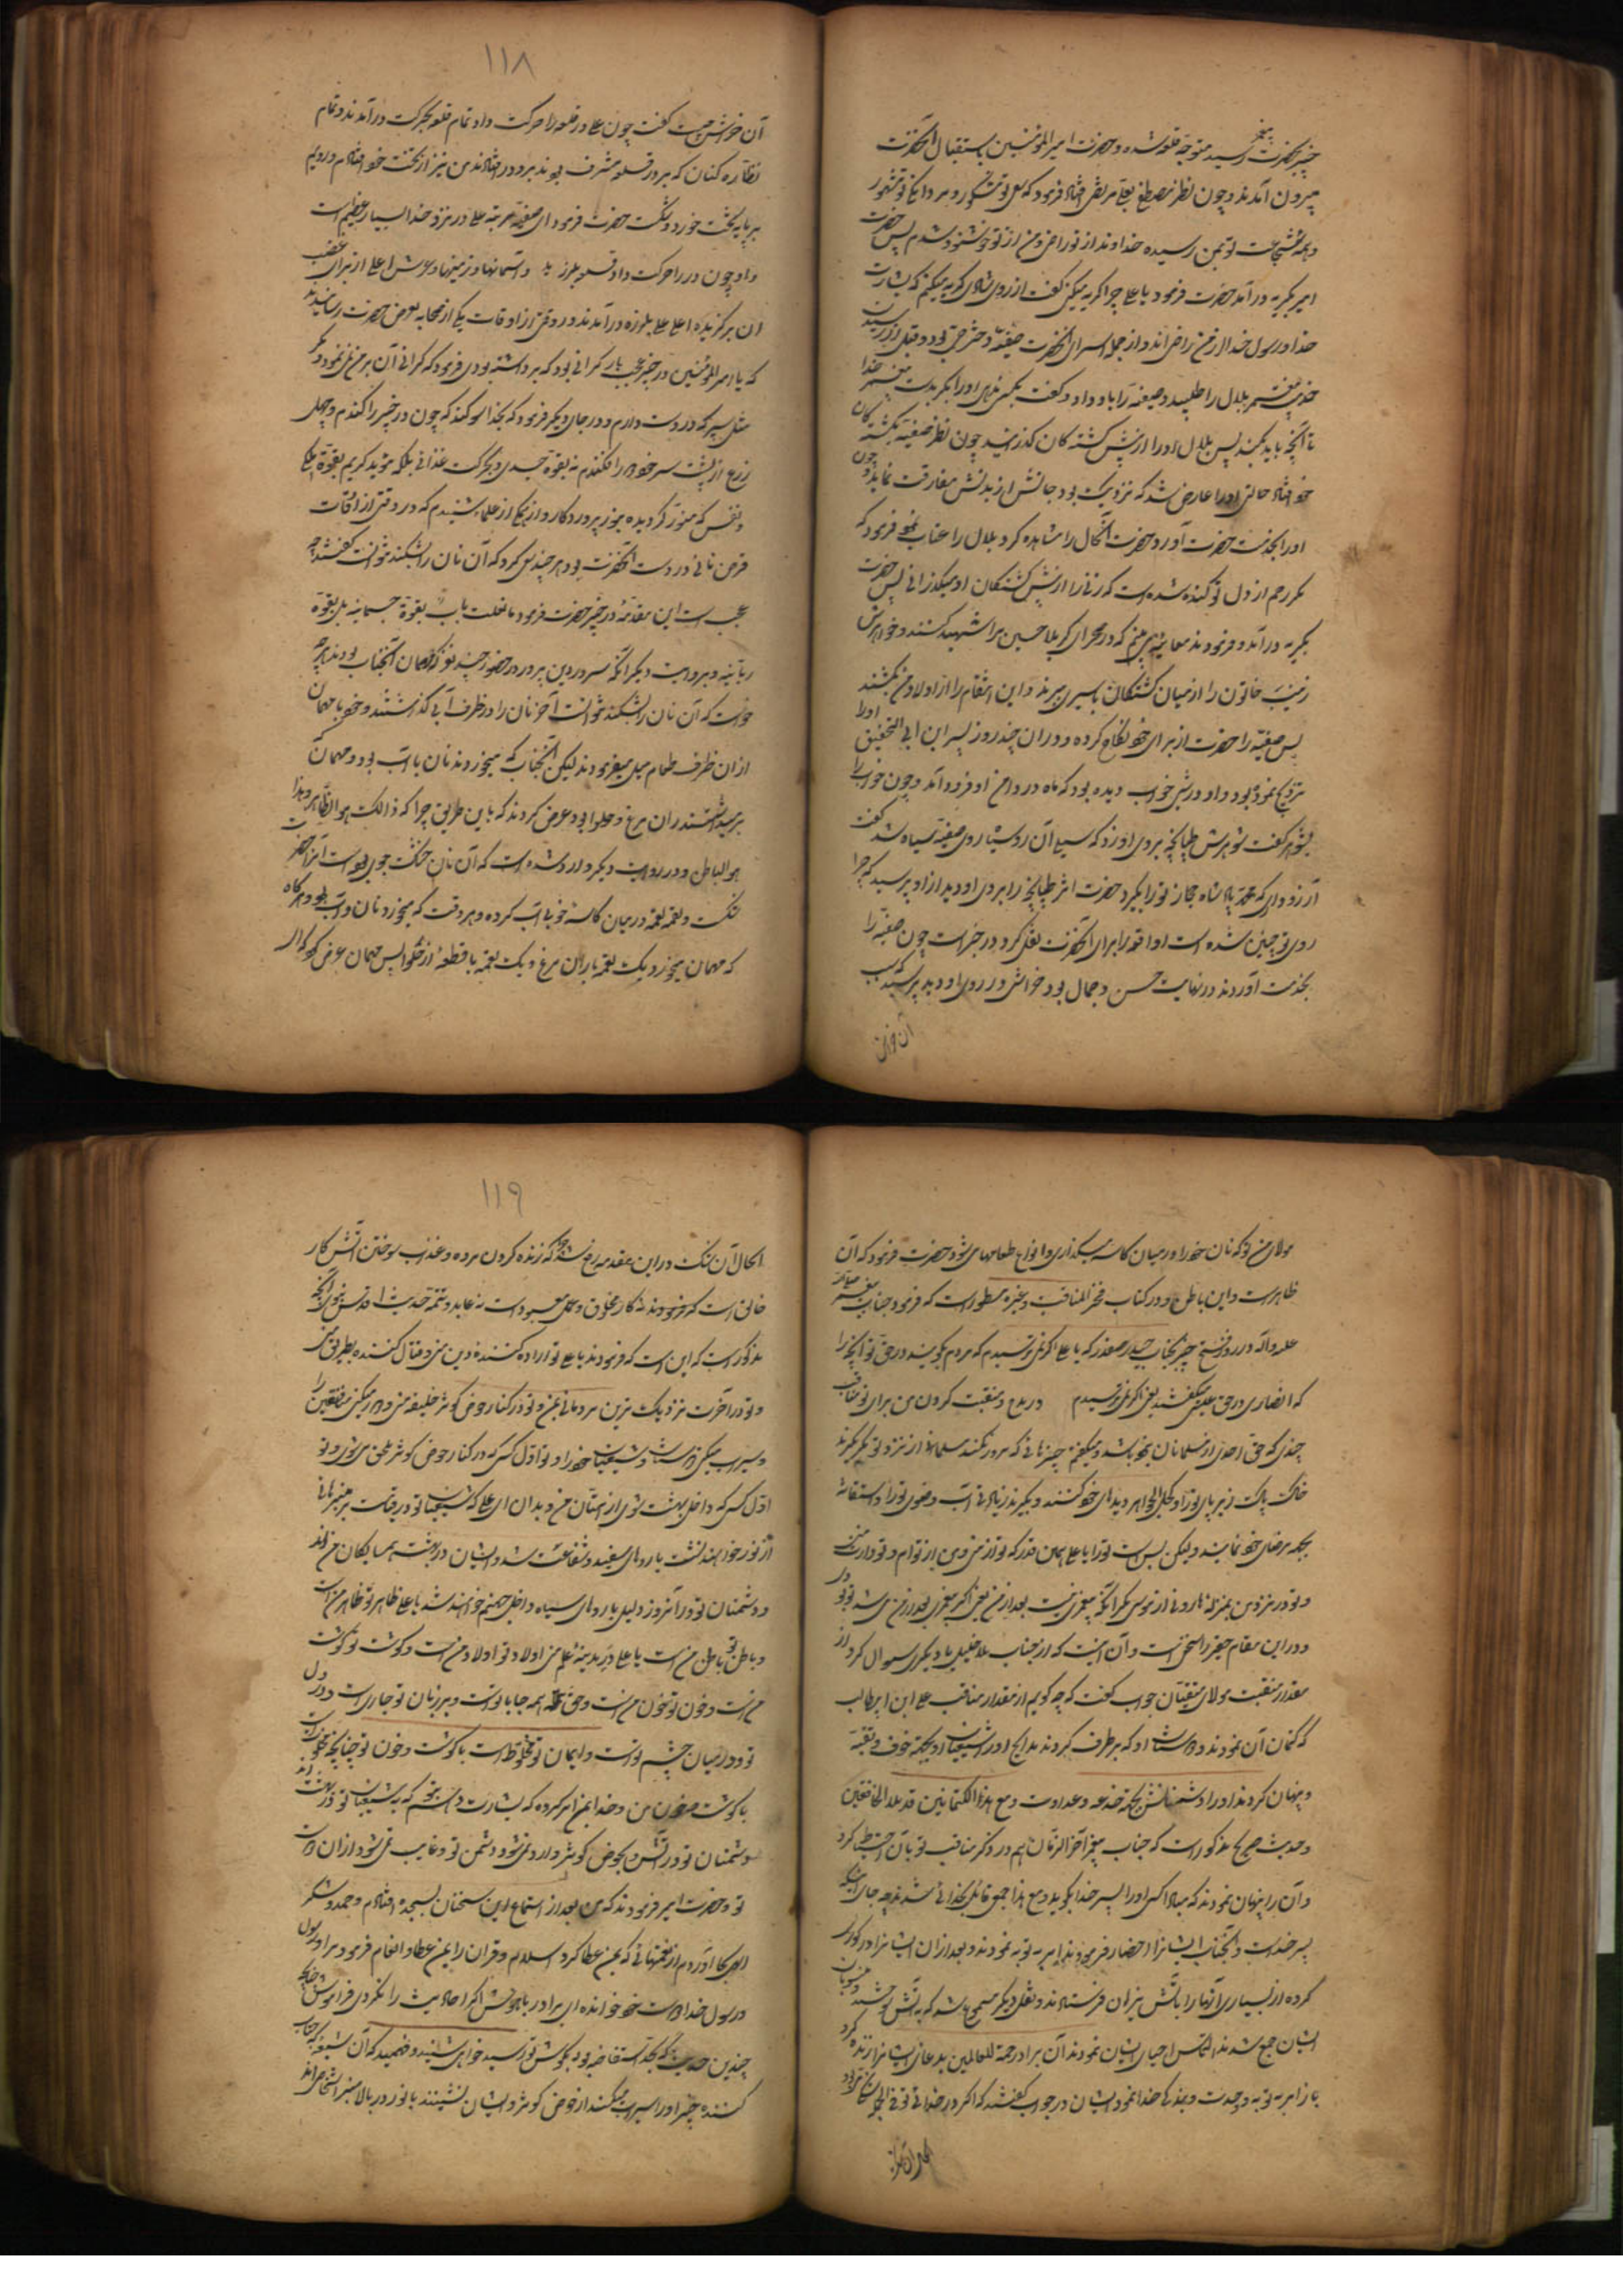 خبر بحضرت پیغمبر رسید متوجه قلعه شده و حضرت امیرالمؤمنین باستقبال آنحضرت
بیرون آمدند و چون نظر مصطفی بعلی مرتضی افتاد فرمود که سعی تو مشکور و مردانگی تو مشهور
و همه شجاعت تو بمن رسیده خداوند از تو راضی و من از تو خوشنود شدم پس حضرت
امیر بگریه در آمد حضرت فرمود یا علی چرا گریه میکنی گفت از روی شادی گریه میکنم که بشارت
خدا و رسول خدا از من راضی‌اند و از جمله اسرای آنحضرت صفیه دختر حی بود و قبل از رسیدن
خدمت پیغمبر بلال را طلبید و صفیه را باو داد و گفت بکسی ندهی او را مگر بدست پیغمبر خدا
تا آنچه باید بکند پس بلال او را از پیش کشته کان گذرانید چون نظر صفیه بکشته کان
خود افتاد حالتی او را عارض شد که نزدیک بود جانش از بدنش مفارقت نماید و چون
او را بخدمت حضرت آورد حضرت آنحال را مشاهده کرد بلال را عتاب نمود فرمود که
مگر رحم از دل تو کنده شده است که زنی را از پیش کشتگان او میگذرانی پس حضرت
بگریه در آمد و فرمودند معاینه می بینم که در صحرای کربلا حسین مرا شهید کنند و خواهرش
زینب خاتون را از میان کشتگان باسیری برند و این انتقام را از اولاد من بکشند
پس صفیه را حضرت از برای خود نکاح کرده و در آن چند روز پسر ابن ابی الحقیق او را
تزویج نموده بود و او در شبی خواب دیده بود که ماه در دامن او فرود آمد و چون خواب را
بشوهر گفت شوهرش طپانچه بروی او زد که سیلی آن رو سیاه روی صفیه سیاه شد گفت
آرزو داری که محمد پادشاه حجاز تو را بگیرد حضرت اثر طپانچه را بر روی او دید از او پرسید که چرا
روی تو چنین شده است او واقعه را برای آنحضرت نقل کرد در خبر است چون صفیه را
بخدمت آوردند در نهایت حسن و جمال بود خراشی در روی او دید پرسید که سبب
آن خراش
۱۱۸
آن خراش چیست گفت چون علی در قلعه را حرکت داد تمام قلعه بحرکت در آمدند و تمام
نظاره کنان که بر در قلعه مشرف بودند برو در افتادند من نیز از تخت خود افتادم و رویم
بر پایه تخت خورد و شکست حضرت فرمود ای صفیه مرتبه علی در نزد خدا بسیار عظیم است
و او چون در را حرکت داد قلعه بلرزید و آسمانها و زمینها و عرش اعلی از برای غضب
آن برگزیده اعلی علی بلرزه در آمدند و در وقتی از اوقات یکی از صحابه بعرض حضرت رسانیدند
که یا امیرالمؤمنین در خیبر عجب بار گرانی بود که برداشته بودی فرمود که گرانی آن بر من نمی نمود مگر
مثل سپر که در دست دارم و در جای دیگر فرمود که بخدا سوگند که چون در خیبر را کندم و چهل
زرع از پشت سر خود را فکندم نه بقوة جسدی و بحرکت غذائی بلکه مؤید گردیدم بقوة ملکی
و نفس که منور گردیده بنور پروردگار و از یکی از علماء شنیدم که در وقتی از اوقات
قرص نانی در دست آنحضرت بود هر چند سعی کرد که آن نان را بشکند نتوانست گفتند چه
عجب است این مقدمه در خیبر حضرت فرمود ما قلعت باب بقوة جسمانیة بل بقوة
ربانیة و بروایت دیگر آنکه سرور دین پرور در حضور چند نفر که مهمان آنجناب بودند هر چه
خواست که آن نان را بشکند نتوانست آخر نان را در ظرف آبی گذاشتند و خود با مهمان
از آن ظرف طعام میل میفرمودند لیکن آنجناب که میخوردند نان با آب بود و مهمان که
بر میداشتند ران مرغ و حلوا بود عرض کردند که باین طریق چرا که ذالک هو الظاهر و هذا
هو الباطن و در روایت دیگر وارد شده است که آن نان خشک جوی بود است آنرا حضرت
شکست و لقمه لقمه در میان کاسه خود باب کرده و هر وقت که میخورد نان و آب بود و هرگاه
که مهمان میخورد یک لقمه با ران مرغ و یک لقمه با قطعه از حلوا پس مهمان عرض کرد که ای
مولای من تو که نان خود را در میان کاسه میگذاری و انواع طعامها می شود حضرت فرمود که آن
ظاهر است و این باطن و در کتاب فخر المناقب و غیره مسطور است که فرمود جناب پیغمبر صلی الله
علیه و آله در روز فتح خیبر بجناب حیدر صفدر که یا علی اگر نمی ترسیدم که مردم بگویند در حق تو آنچه را
که انصاری در حق عیسی میگفتند یعنی اگر نمی ترسیدم در مدح و منقبت کردن من برای تو مناقب
چندی که حق احدی از مسلمانان نبوده باشد و میگفتم چیزهائی که مرور نکند مسلمانا از نزد تو مگر بگیرند
خاک پاک زیر پای تو را و کحل الجواهر دیدهای خود کنند و بگیرند زیادتی آب وضوی تو را و استفا
بجهة مرضای خود نمایند و لیکن بس است تو را یا علی همین قدر که تو از منی و من از تو ام و تو وارث منی
و تو در نزد من بمنزله هارونی از موسی مگر آنکه پیغمبری نیست بعد از من یعنی اگر پیغمبری بعد از من می شد تو بودی
و در این مقام خبر راسخی است و آن اینست که از جناب ملا خلیل یا دیگری سوال کرد از
مقدار منقبت مولای متقیان جواب گفت که چه گویم از مقدار مناقب علی ابن ابیطالب
که کتمان آن نمودند دوستان او که بر طرف کردند مدایح او را شیعیان او بجهة خوف و تقیه
و پنهان کردند او را دشمنانش بجهة خدعه و عداوت و مع هذا الکتمانین قد ملاء الخافقین
و حدیث صریح مذکور است که جناب پیغمبر آخر الزمان هم در ذکر مناقب تو بان احتیاط کرد
و آن را پنهان نمودند که مبادا کسی او را پسر خدا بگوید و مع هذا جمعی قائل بخدائی شدند چه جای اینکه
پسر خداست و آنجناب ایشانرا احضار فرمودند امر به توبه نمودند و بعد از آن ایشانرا در گودی
کرده از بسیاری آنها را بآتش نیران فرستادند و نقل دیگر صحیح باشد که به آتش سوختند و منسوبان
ایشان جمع شدند التماس احیای ایشان نمودند آن برادر رحمة للعالمین بدعای ایشانرا زنده کرد
باز امر به توبه و وحدت و بندگی خدا نمود ایشان در جواب گفتند که اگر در خدائی تو
الحال آن
۱۱۹
الحال آن شک در این مقدمه رفع شد چونکه زنده کردن مرده و عذاب سوختن آتش کار
خالق است که فرمودند نه کار مخلوق و عمل معبود است نه عابد و تتمه حدیث اقدس نبوی آنچه
مذکور است که این است که فرمودند یا علی تو اراده کننده دین منی و قتال کننده بطریق منی
و تو در آخرت نزدیک ترین مردمانی بمن و تو در کنار حوض کوثر خلیفه منی و دور میکنی منافقین را
و سیراب میکنی دوستان و شیعیان خود را و تو اول کسی که در کنار حوض کوثر بمن ملحق میشوی و تو
اول کسی که داخل بهشت شوی از امتان من و بدان ای علی که شیعیان تو در قیامت بر منبرهائی
از نور خواهند نشست با روهای سفید و شفاعت شد و ایشان در بهشت همسایگان من اند
و دشمنان تو در آنروز ذلیل با روهای سیاه داخل جهنم خواهند شد یا علی ظاهر تو ظاهر من است
و باطن تو باطن من است یا علی در مدینه علم من اولاد تو اولاد من است و گوشت تو گوشت
من است و خون تو خون من است و حق همه جا با تو است و بر زبان تو جاری است و در دل
تو و در میان چشم تو است و ایمان تو مخلوط است با گوشت و خون تو چنانچه مخلوط است
با گوشت و خون من و خدا بمن امر کرده که بشارت دهم تو را که شیعیان تو در بهشت اند
و دشمنان تو در آتش و بحوض کوثر وارد نمی شود دشمن تو و غایب نمی شود از آن دوست
تو و حضرت امیر فرمودند که من بعد از استماع این سخنان بسجده افتادم و حمد و شکر
الهی بجا آوردم از نعمتهائی که بمن عطا کرد اسلام و قرآن را بمن عطا و انعام فرمود مرا و رسول
در رسول خدا دوست خود خوانده ای برادر با هوش اگر احادیث را نکردی فراموش چنانچه
چندین حدیث که بحد استفاضه بود بگوش تو رسید خواهی شنید و فهمید که آن شیعه جناب
کننده خیبر او را سیراب میکند از حوض کوثر و ایشان نشینند با نور در بالای منبر اشخاص اند